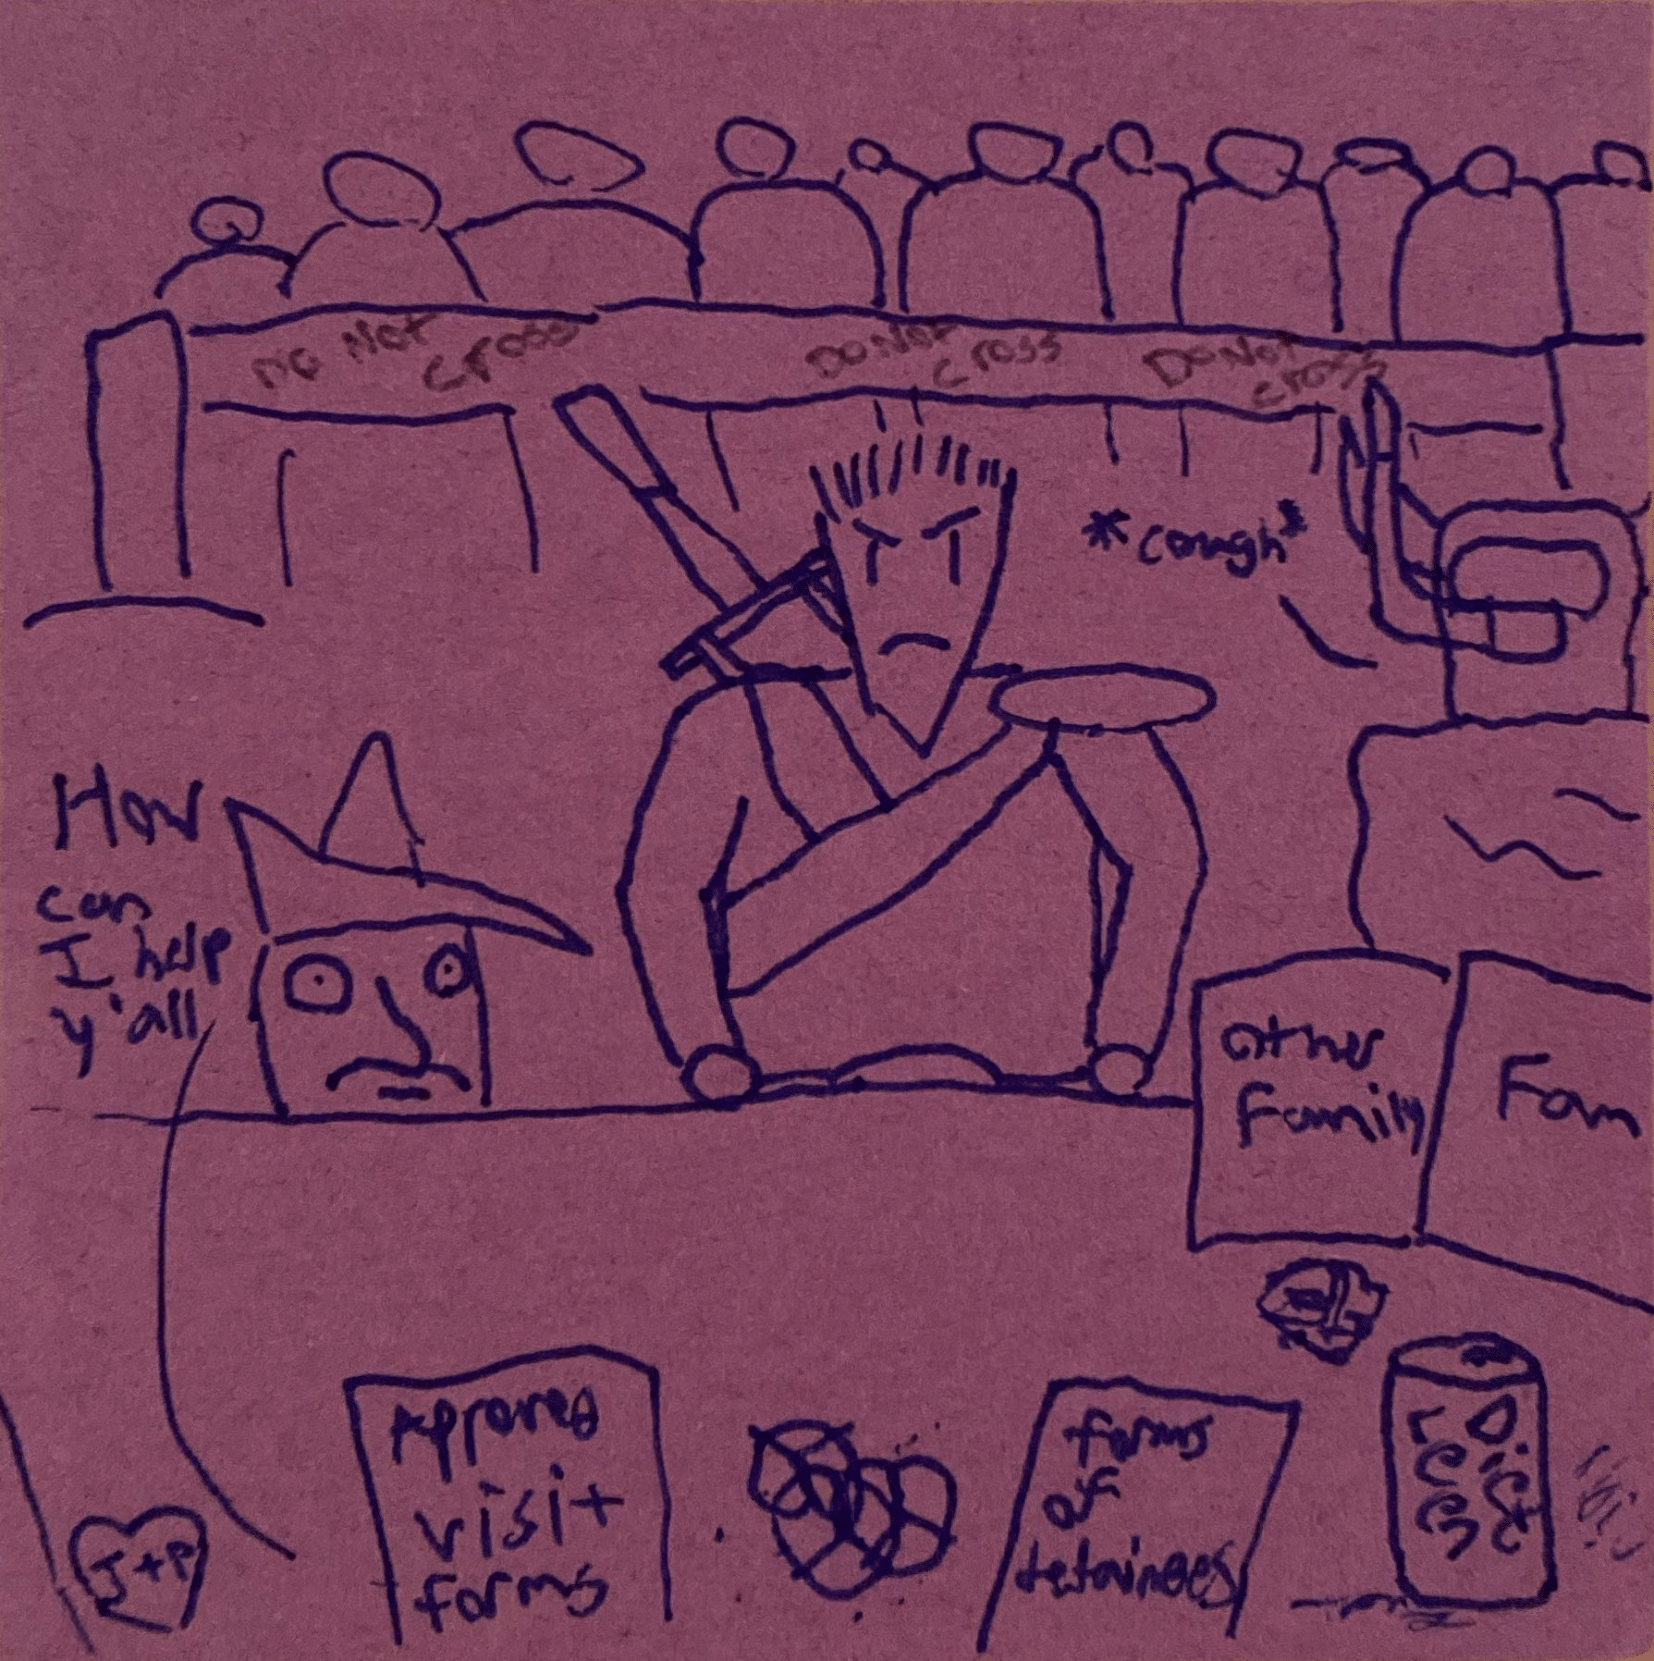 Do Not
cross
Do Not
cross
Do Not
cross
*cough*
How
can
I help
y'all
other
Family
Fam
Approved
visit
forms
forms
of
detainees
J+P